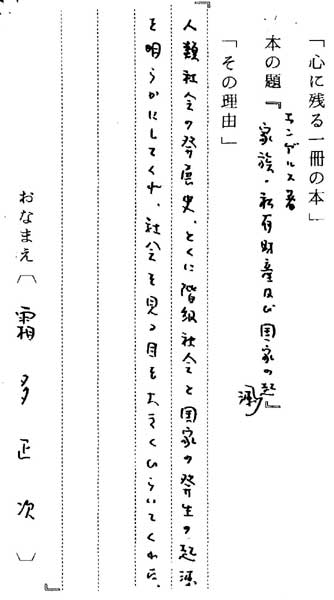 「心に残る一冊の本」
エンゲルス著
本の題『家族・私有財産及び国家の起源』
「その理由」
『人類社会の発展史、とくに階級社会と国家の発生の起源
を明らかにしてくれ、社会を見る目を大きくひらいてくれた。
』
おなまえ〔霜多正次〕